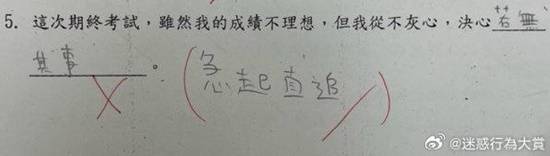 5. 這次期終考試，雖然我的成績不理想，但我從不灰心，決心若無
其事。(急起直追)
@迷惑行為大賞